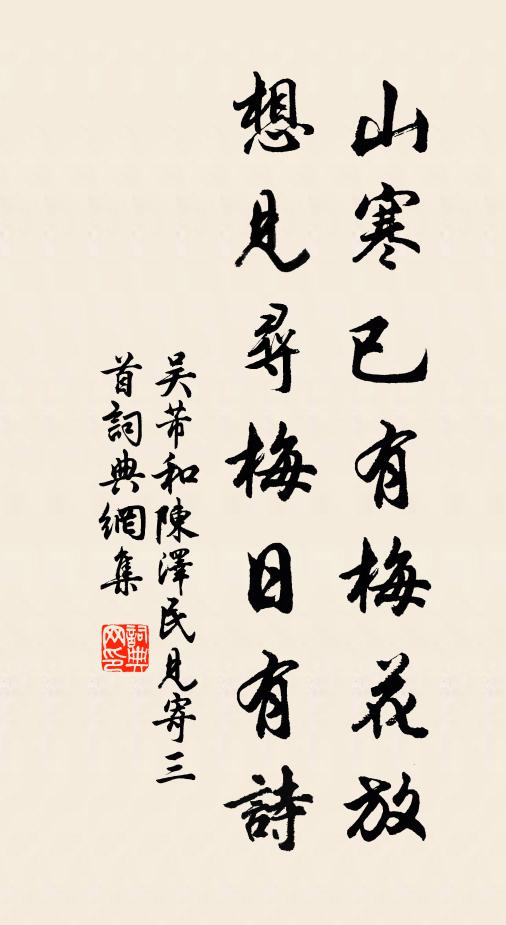 山寒已有梅花放
想見尋梅日有詩
吳芾和陳澤民見寄三
首詞典網集
詞典
网印